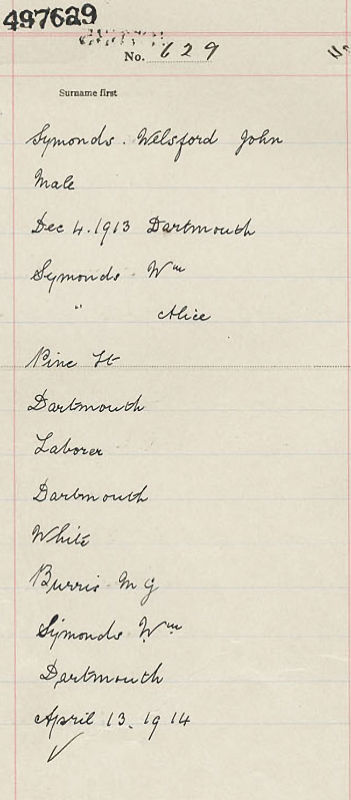 497629
No. 629
Surname first
Symonds. Welsford John
Male
Dec 4. 1913 Dartmouth
Symonds. Wm
" Alice
Pine St
Dartmouth
Laborer
Dartmouth
White
Burris M G
Symonds Wm
Dartmouth
April 13. 1914